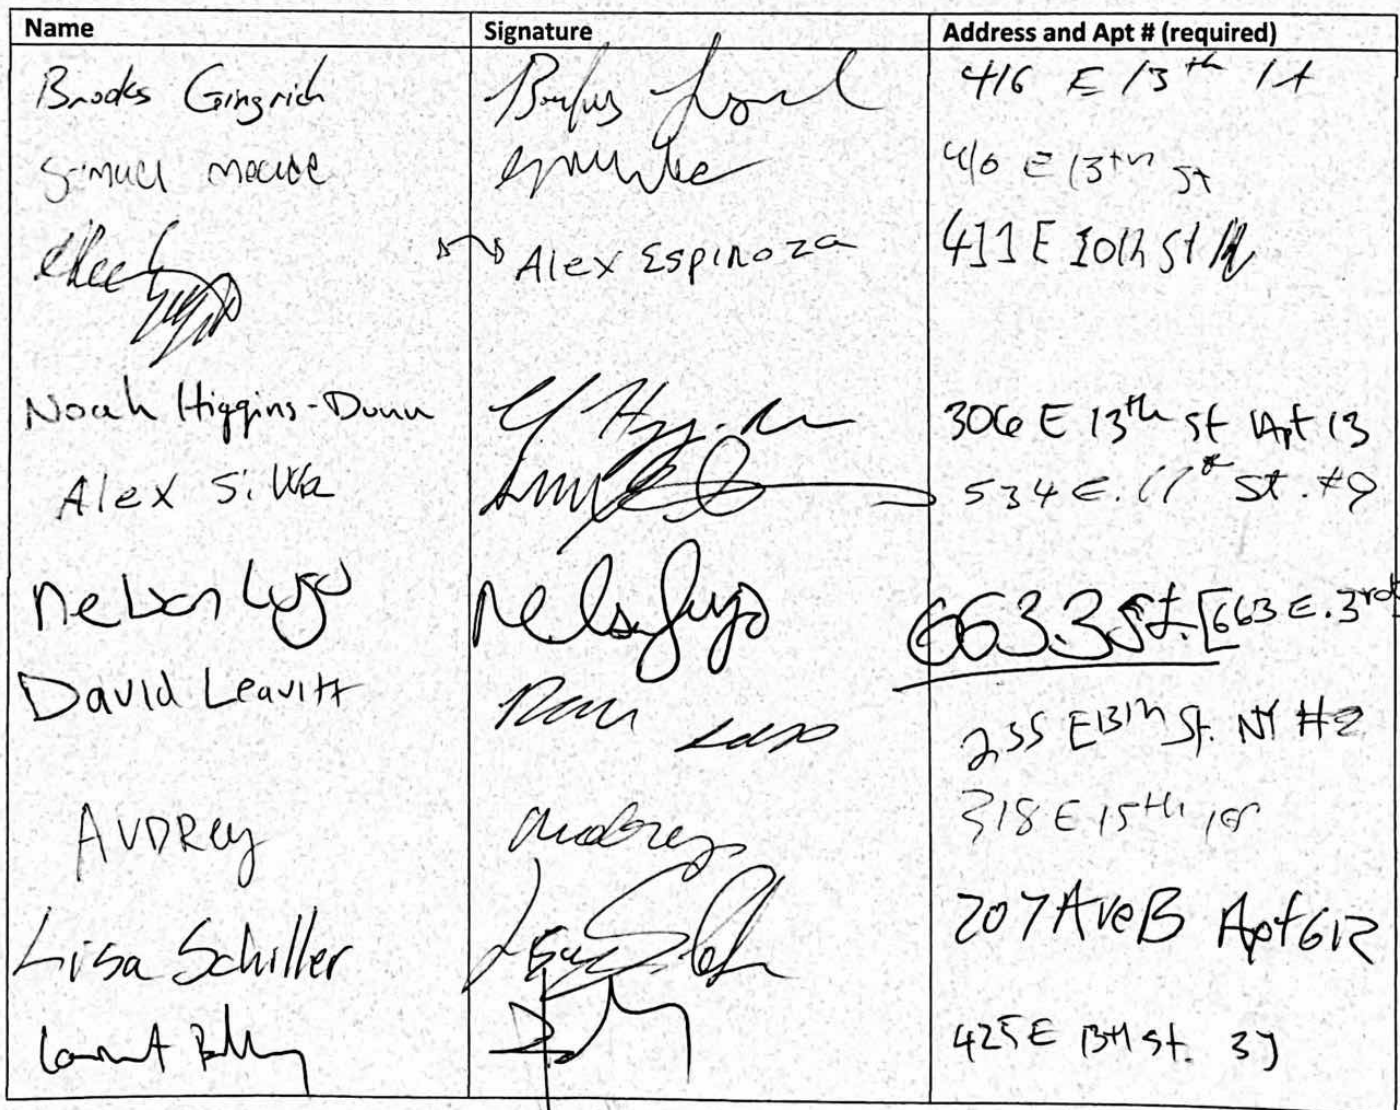 Name Signature Address and Apt # (required)
Brooks Gingrich 416 E 13th
Samuel 410 E 13th St
Alex Espinoza 411 E 10th St
Noah Higgins-Dunn 306 E 13th St Apt 13
Alex Silva 534 E. 11th St. #9
Nelson Lugo Nelson Lugo 663.3 St. [663 E. 3rd
David Leavitt 235 E 13th St. NY #2
AUDRey Audrey 318 E 15th
Lisa Schiller 207 Ave B Apt 612
425 E 13th St. 3J